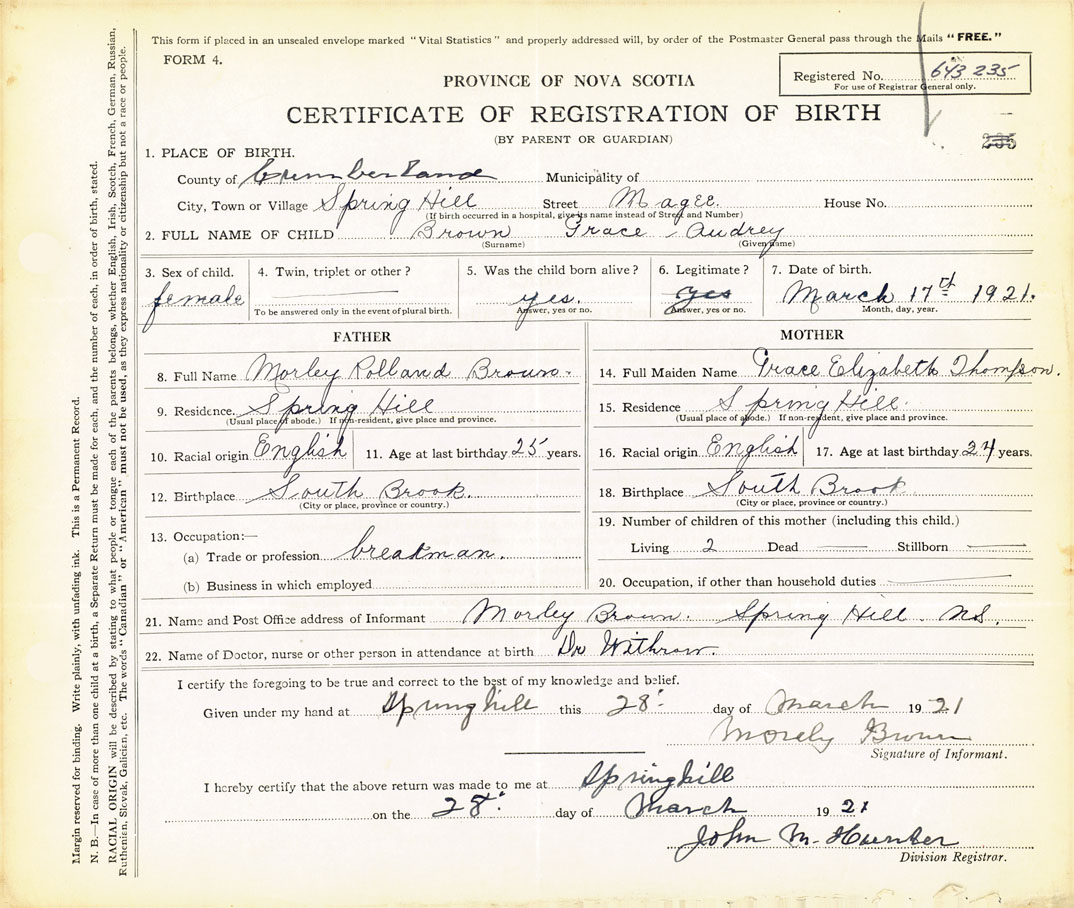 This form if placed in an unsealed envelope marked "Vital Statistics" and properly addressed will, by order of the Postmaster General pass through the Mails "FREE."
FORM 4.
Registered No. 643 235
For use of Registrar General only.
PROVINCE OF NOVA SCOTIA
CERTIFICATE OF REGISTRATION OF BIRTH
(BY PARENT OR GUARDIAN)
235
1. PLACE OF BIRTH.
County of Cumberland Municipality of
City, Town or Village Spring Hill Street Magee. House No.
(If birth occurred in a hospital, give its name instead of Street and Number)
2. FULL NAME OF CHILD Brown Grace Audrey
(Surname) (Given name)
3. Sex of child. 4. Twin, triplet or other? 5. Was the child born alive? 6. Legitimate? 7. Date of birth.
female yes. yes March 17th 1921.
To be answered only in the event of plural birth. Answer, yes or no. Answer, yes or no. Month, day, year.
FATHER
8. Full Name Morley Rolland Brown.
9. Residence. Spring Hill
(Usual place of abode.) If non-resident, give place and province.
10. Racial origin English 11. Age at last birthday 25 years.
12. Birthplace South Brook.
(City or place, province or country.)
13. Occupation:—
(a) Trade or profession breakman.
(b) Business in which employed
MOTHER
14. Full Maiden Name Grace Elizabeth Thompson.
15. Residence Spring Hill.
(Usual place of abode.) If non-resident, give place and province.
16. Racial origin English 17. Age at last birthday 24 years.
18. Birthplace South Brook
(City or place, province or country.)
19. Number of children of this mother (including this child.)
Living 2 Dead Stillborn
20. Occupation, if other than household duties
21. Name and Post Office address of Informant Morley Brown. Spring Hill. NS.
22. Name of Doctor, nurse or other person in attendance at birth Dr Withrow.
I certify the foregoing to be true and correct to the best of my knowledge and belief.
Given under my hand at Springhill this 28. day of March 1921
Morely Brown
Signature of Informant.
I hereby certify that the above return was made to me at Springhill
on the 28. day of March 1921
John M. Hunter
Division Registrar.
Margin reserved for binding. Write plainly, with unfading ink. This is a Permanent Record.
N. B.—In case of more than one child at a birth, a Separate Return must be made for each, and the number of each, in order of birth, stated.
RACIAL ORIGIN will be described by stating to what people or tongue each of the parents belongs, whether English, Irish, Scotch, French, German, Russian,
Ruthenian, Slovak, Galician, etc. The words "Canadian" or "American" must not be used, as they express nationality or citizenship but not a race or people.